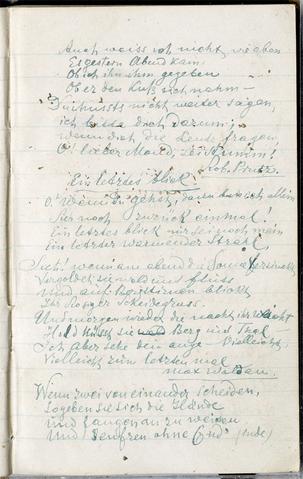 Auch weiss ich nicht, wie eben
Es gestern Abend kam,
Ob ich ihn ihm gegeben
Ob er den Kuss sich nahm—
Du musst's nicht weiter sagen,
ich bitte dich darum;
wenn dich die Leute fragen
O! lieber Mond, sei stumm!
Rob. Prutz.
Ein letztes blick!
O! Wenn du gehst, dann
noch zurück einmal!
Ein letztes blick nur sei noch mein
Ein letzter wärmender Strahl,
Sieh! wenn am abend die Sonne versinkt
Vergoldet sie wald und fluss
Und auf bergesthron blickt
Ihr Scheidegruss.
Und morgen wieder die nacht ihr
sie Berg und Thal—
Ich aber sehe dein auge—Vielleicht,
Vielleicht zum letzten mal
max
Wenn zwei von einander scheiden,
So geben sie sich die Hände
und fangen an zu weinen
Und Seufzen ohne End (ende)